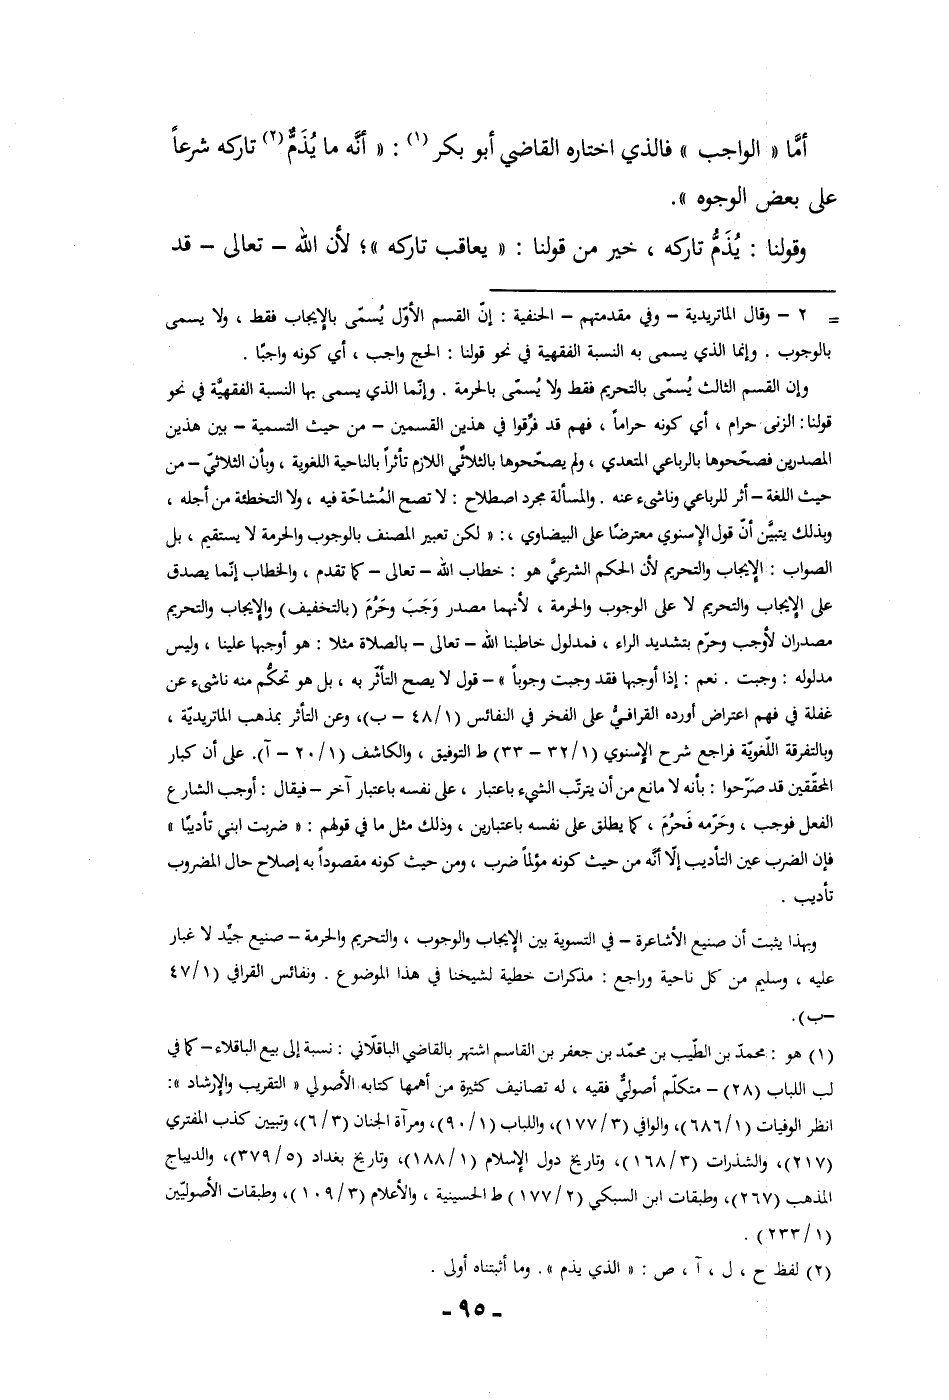 أمَّا « الواجب » فالذي اختاره القاضي أبو بكر (١) : « أنَّه ما يُذَمُّ (٢) تاركه شرعاً
على بعض الوجوه ».
وقولنا : يُذَمُّ تاركه ، خير من قولنا : « يعاقب تاركه »؛ لأن الله – تعالى – قد
= ٢ – وقال الماتريدية – وفي مقدمتهم – الحنفية : إنّ القسم الأوّل يُسمّى بالإيجاب فقط ، ولا يسمى
بالوجوب . وإنما الذي يسمى به النسبة الفقهية في نحو قولنا : الحج واجب ، أي كونه واجبًا .
وإن القسم الثالث يُسمّى بالتحريم فقط ولا يُسمّى بالحرمة . وإنّما الذي يسمى بها النسبة الفقهيَّة في نحو
قولنا: الزنى حرام ، أي كونه حراماً ، فهم قد فرِّقوا في هذين القسمين – من حيث التسمية – بين هذين
المصدرين فصحّحوها بالرباعي المتعدي ، ولم يصحّحوها بالثلاثّي اللازم تأثراً بالناحية اللغوية ، وبأن الثلاثيّ – من
حيث اللغة – أثر للرباعي وناشىء عنه . والمسألة مجرد اصطلاح : لا تصح المُشاحّة فيه ، ولا التخطئة من أجله ،
وبذلك يتبيَّن أنّ قول الإسنوي معترضًا على البيضاوي ،: « لكن تعبير المصنف بالوجوب والحرمة لا يستقيم ، بل
الصواب : الإيجاب والتحريم لأن الحكم الشرعيَّ هو : خطاب الله – تعالى – كما تقدم ، والخطاب إنّما يصدق
على الإيجاب والتحريم لا على الوجوب والحرمة ، لأنهما مصدر وَجَبَ وحَرُمَ (بالتخفيف) والإيجاب والتحريم
مصدران لأوجب وحرّم بتشديد الراء ، فمدلول خاطبنا الله – تعالى – بالصلاة مثلا : هو أوجبها علينا ، وليس
مدلوله : وجبت . نعم : إذا أوجبها فقد وجبت وجوباً » – قول لا يصح التأثّر به ، بل هو تحكُّم منه ناشىء عن
غفلة في فهم اعتراض أورده القرافيُّ على الفخر في النفائس (٤٨/١ – ب)، وعن التأثر بمذهب الماتريديّة ،
وبالتفرقة اللّغويّة فراجع شرح الإسنوي (٣٢/١ – ٣٣) ط التوفيق ، والكاشف (٢٠/١ – آ). على أن كبار
المحقّقين قد صَرّحوا : بأنه لا مانع من أن يترتّب الشيء باعتبار ، على نفسه باعتبار آخر – فيقال : أوجب الشارع
الفعل فوجب ، وحَرّمه فَحرُمَ ، كما يطلق على نفسه باعتبارين ، وذلك مثل ما في قولهم : « ضربت ابني تأديبًا »
فإن الضرب عين التأديب إلّا أنَّه من حيث كونه مؤلماً ضرب ، ومن حيث كونه مقصوداً به إصلاح حال المضروب
تأديب .
وبهذا يثبت أن صنيع الأشاعرة – في التسوية بين الإيجاب والوجوب ، والتحريم والحرمة – صنيع جيِّد لا غبار
عليه ، وسليم من كل ناحية وراجع : مذكرات خطية لشيخنا في هذا الموضوع . ونفائس القرافي (٤٧/١
–ب).
(١) هو : محمدّ بن الطّيب بن محمّد بن جعفر بن القاسم اشتهر بالقاضي الباقلّاني : نسبة إلى بيع الباقلاء – كما في
لب اللباب (٢٨) – متكلّم أصوليٌّ فقيه ، له تصانيف كثيرة من أهمها كتابه الأصولي « التقريب والإرشاد »:
انظر الوفيات (٦٨٦/١)، والوافي (١٧٧/٣)، واللباب (٩٠/١)، ومرآة الجنان (٦/٣)، وتبيين كذب المفتري
(٢١٧)، والشذرات (١٦٨/٣)، وتاريخ دول الإسلام (١٨٨/١)، وتاريخ بغداد (٣٧٩/٥)، والديباج
المذهب (٢٦٧)، وطبقات ابن السبكي (١٧٧/٢) ط الحسينية ، والأعلام (١٠٩/٣)، وطبقات الأصوليّين
(٢٣٣/١) .
(٢) لفظ ح ، ل ، آ ، ص : « الذي يذم ». وما أثبتناه أولى .
- ٩٥ -